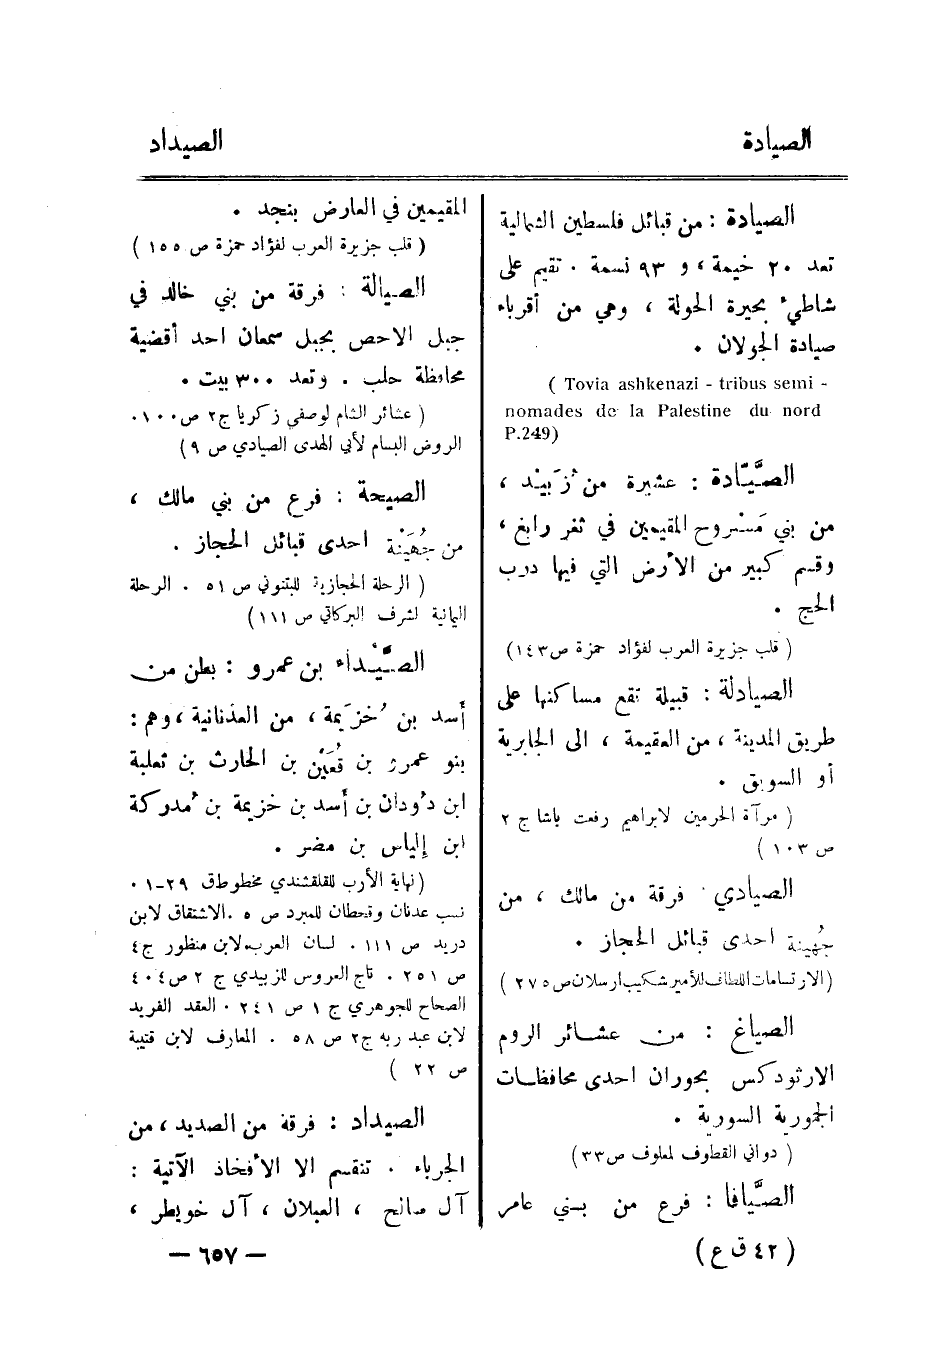 الصيادة
الصيداد
الصيادة : من قبائل فلسطين الشمالية
تعد ٢٠ خيمة ، و ٩٣ نسمة . تقيم على
شاطىء بحيرة الحولة ، وهي من أقرباء
صيادة الجولان .
( Tovia ashkenazi - tribus semi -
nomades de la Palestine du nord
P.249)
الصَّيَّادة : عشيرة من زُبَيْد ،
من بني مَسْروح المقيمين في ثغر رابغ ،
وقسم كبير من الأرض التي فيها درب
الحج .
( قلب جزيرة العرب لفؤاد حمزة ص١٤٣)
الصيادلة : قبيلة تقع مساكنها على
طريق المدينة ، من العقيمة ، الى الجابرية
أو السويق .
( مرآة الحرمين لابراهيم رفعت باشا ج ٢
ص ١٠٣ )
الصيادي : فرقة من مالك ، من
جُهينة احدى قبائل الحجاز .
(الارتسامات اللطاف للأمير شكيب ارسلان ص ٢٧٥ )
الصياغ : من عشائر الروم
الارثودكس بحوران احدى محافظات
الجمورية السورية .
( دواني القطوف لمعلوف ص٣٣)
الصَّيافا : فرع من بني عامر
( ٤٢ ق ع )
المقيمين في العارض بنجد .
( قلب جزيرة العرب لفؤاد حمزة ص ١٥٥ )
الصيالة : فرقة من بني خالد في
جبل الاحص بجبل سمعان احد أقضية
محافظة حلب . وتعد ٣٠٠ بيت .
( عشائر الشام لوصفي زكريا ج٢ ص١٠٠.
الروض البسام لأبي الهدى الصيادي ص ٩ )
الصيحة : فرع من بني مالك ،
من جُهَيْنة احدى قبائل الحجاز .
( الرحلة الحجازية للبتنوني ص ٥١ . الرحلة
اليمانية لشرف البركاتي ص ١١١ )
الصَّيْداء بن عمرو : بطن من
أسد بن خُزَيمة ، من العدنانية ، وهم :
بنو عمرو بن قُعَيْن بن الحارث بن ثعلبة
ابن دُودان بن أسد بن خزيمة بن مُدركة
ابن إلياس بن مضر .
(نهاية الأرب للقلقشندي مخطوط ق ٢٩-١ .
نسب عدنان وقحطان للمبرد ص ٥ .الاشتقاق لابن
دريد ص ١١١ . لسان العرب لابن منظور ج٤
ص ٢٥١ . تاج العروس للزبيدي ج ٢ ص٤٠٤
الصحاح للجوهري ج ١ ص ٢٤١ . العقد الفريد
لابن عبد ربه ج٢ ص ٥٨ . المعارف لابن قتيبة
ص ٢٢ )
الصيداد : فرقة من الصديد ، من
الجرباء . تنقسم الا الأفخاذ الآتية :
آل صالح ، العبلان ، آل خويطر ،
— ٦٥٧ —